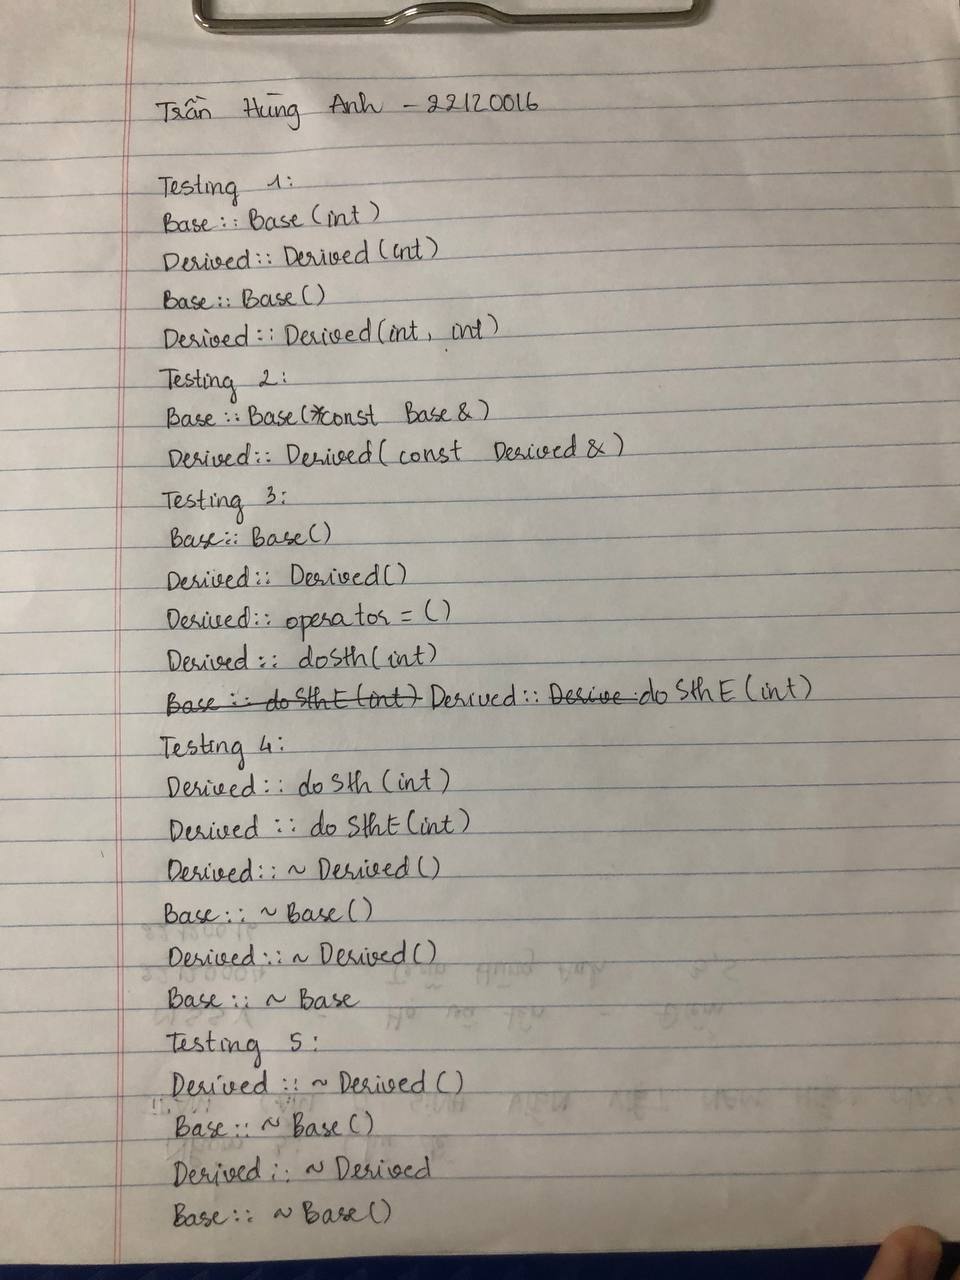 Trần Hùng Anh - 22120016
Testing 1:
Base::Base(int)
Derived::Derived(int)
Base::Base()
Derived::Derived(int, int)
Testing 2:
Base::Base(const Base&)
Derived::Derived(const Derived&)
Testing 3:
Base::Base()
Derived::Derived()
Derived::operator=()
Derived::doSth(int)
Base::doSthE(int) Derived::Derive doSthE(int)
Testing 4:
Derived::doSth(int)
Derived::doSthE(int)
Derived::~Derived()
Base::~Base()
Derived::~Derived()
Base::~Base
Testing 5:
Derived::~Derived()
Base::~Base()
Derived::~Derived
Base::~Base()